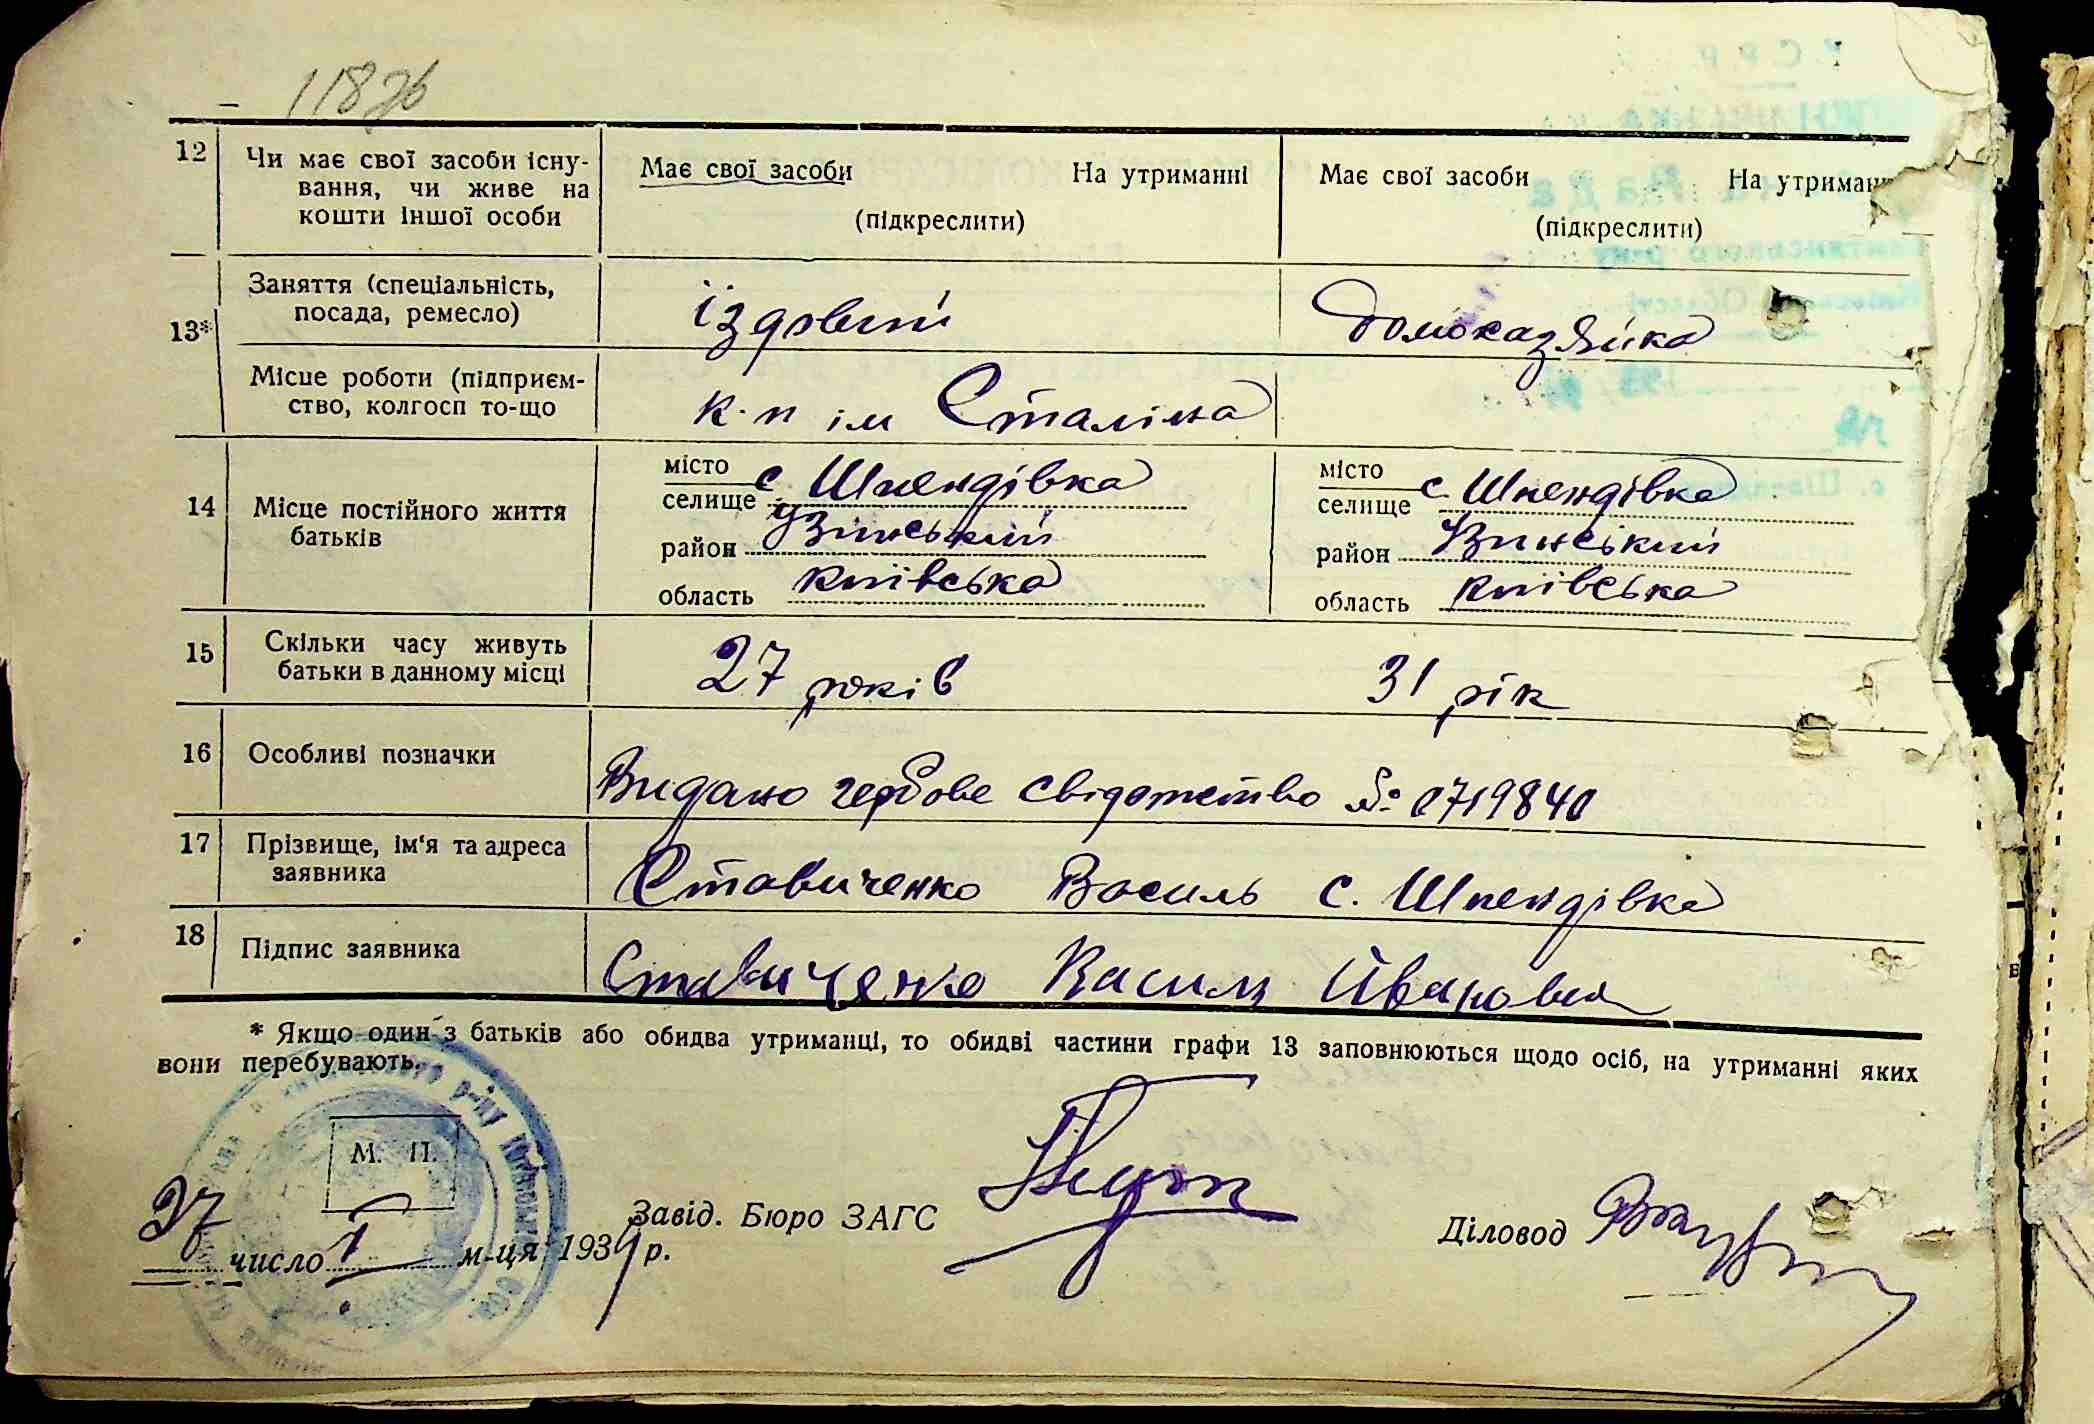 118зв
12 Чи має свої засоби існу-
вання, чи живе на
кошти іншої особи
Має свої засоби На утриманні
(підкреслити)
Має свої засоби На утриман
(підкреслити)
13*
Заняття (спеціальність,
посада, ремесло)
їздовий
домохазяйка
Місце роботи (підприєм-
ство, колгосп то-що
к-п ім Сталіна
14 Місце постійного життя
батьків
місто
селище с Шпендівка
район Узинський
область київська
місто
селище с. Шпендівка
район Узинський
область київська
15 Скільки часу живуть
батьки в данному місці
27 років
31 рік
16 Особливі позначки
Видано гербове свідотство № 0719840
17 Прізвище, ім'я та адреса
заявника
Ставиченко Василь с. Шпендівка
18 Підпис заявника
Ставиченко Василь Иванович
* Якщо один з батьків або обидва утриманці, то обидві частини графи 13 заповнюються щодо осіб, на утриманні яких
вони перебувають.
М. П.
27 число I м-ця 193 р.
Завід. Бюро ЗАГС
Діловод